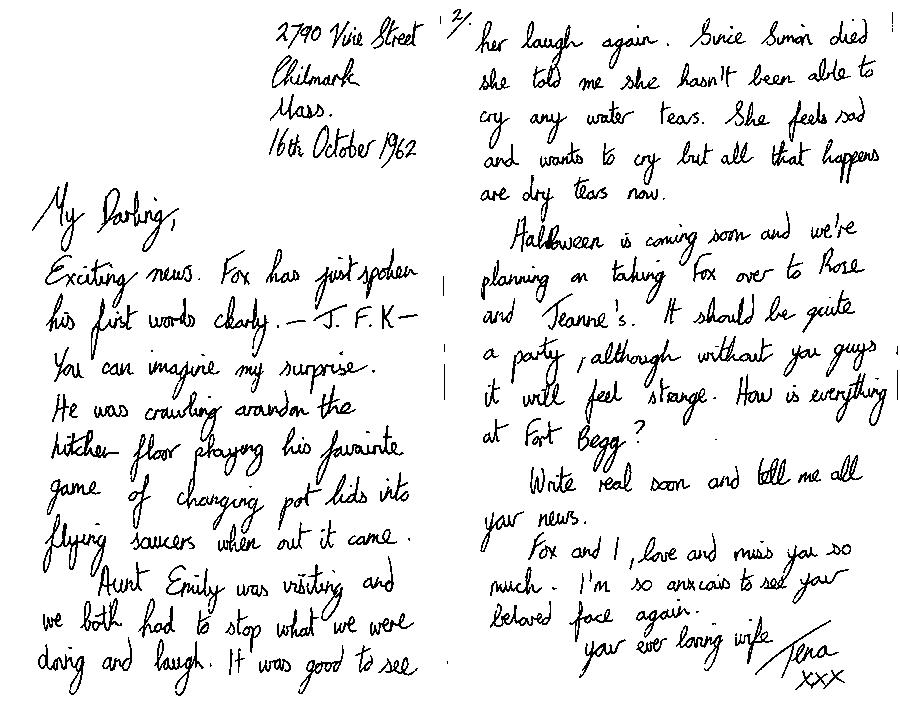 2790 Vine Street
Chilmark
Mass.
16th October 1962
My Darling,
Exciting news. Fox has just spoken
his first words clearly. — J. F. K —
You can imagine my surprise.
He was crawling around on the
kitchen floor playing his favourite
game of changing pot lids into
flying saucers when out it came.
Aunt Emily was visiting and
we both had to stop what we were
doing and laugh. It was good to see
2/.
her laugh again. Since Simon died
she told me she hasn't been able to
cry any water tears. She feels sad
and wants to cry but all that happens
are dry tears now.
Halloween is coming soon and we're
planning on taking Fox over to Rose
and Jeanne's. It should be quite
a party, although without you guys
it will feel strange. How is everything
at Fort Begg?
Write real soon and tell me all
your news.
Fox and I, love and miss you so
much. I'm so anxious to see your
beloved face again.
your ever loving wife
Tena
xxx